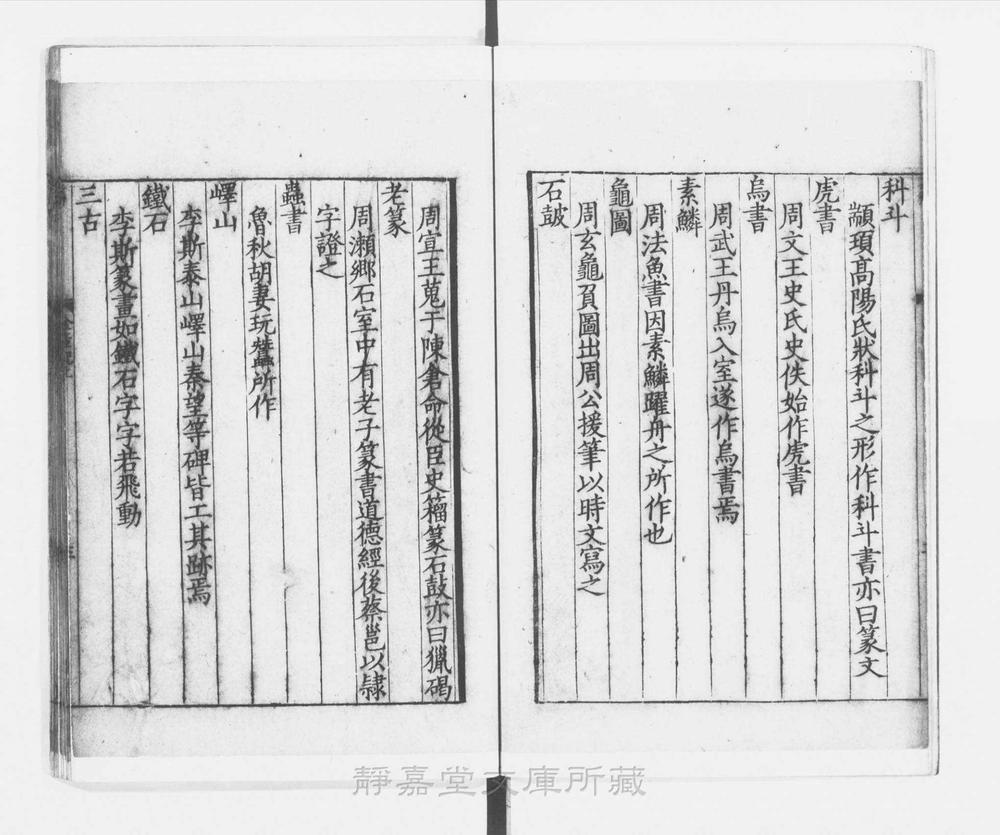 科斗
顓頊高陽氏狀科斗之形作科斗書亦曰篆文
虎書
周文王史氏史佚始作虎書
烏書
周武王丹烏入室遂作烏書焉
素鱗
周法魚書因素鱗躍舟之所作也
龜圖
周玄龜負圖出周公援筆以時文寫之
石鼓
周宣王蒐于陳倉命從臣史籒篆石鼓亦曰獵碣
老篆
周瀨鄉石室中有老子篆書道德經後蔡邕以隸
字證之
蟲書
魯秋胡妻玩蠶所作
嶧山
李斯泰山嶧山秦望等碑皆工其跡焉
鐵石
李斯篆畫如鐵石字字若飛動
三古
靜嘉堂文庫所藏